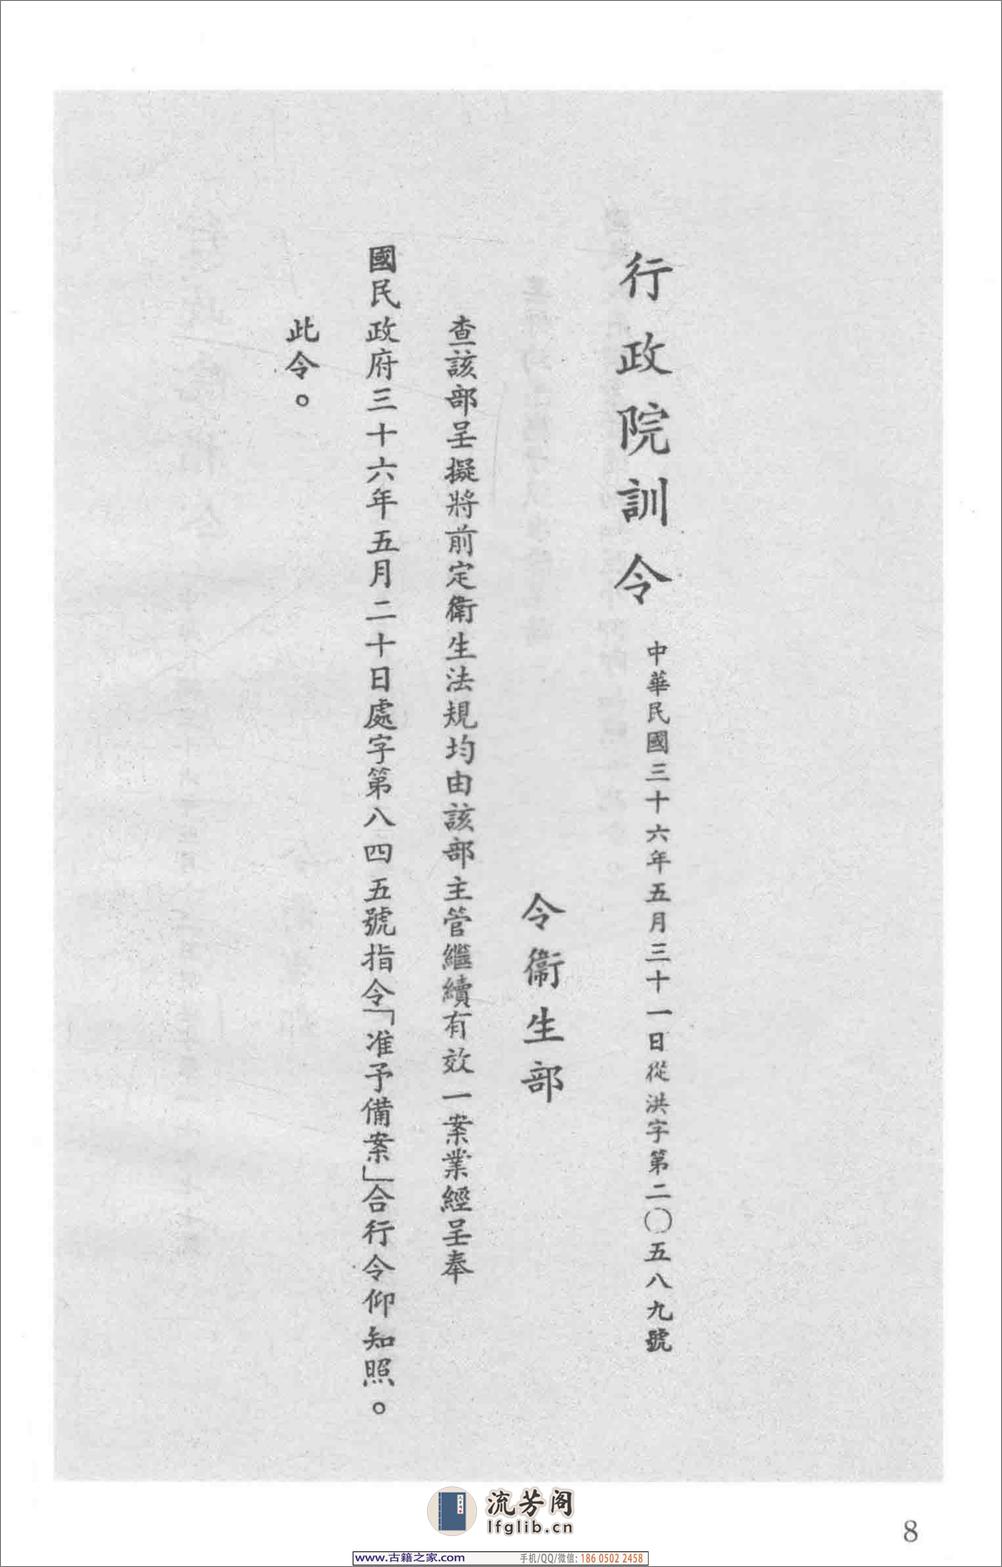 行政院訓令 中華民國三十六年五月三十一日從洪字第二〇五八九號
令衞生部
查該部呈擬將前定衞生法規均由該部主管繼續有效一案業經呈奉
國民政府三十六年五月二十日處字第八四五號指令「准予備案」合行令仰知照。
此令。
流芳阁
lfglib.cn
8
www.古籍之家.com
手机/QQ/微信: 186 0502 2458